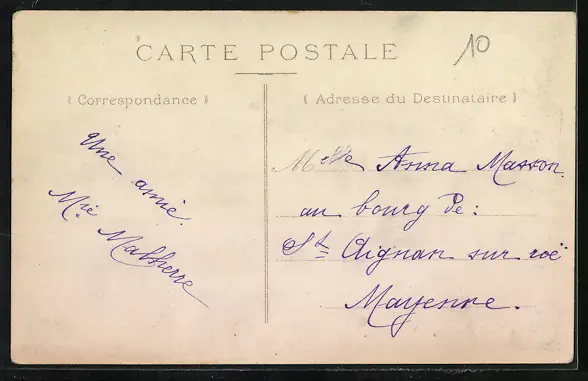 CARTE POSTALE
10
( Correspondance )
( Adresse du Destinataire )
Une amie.
Mie Malherre
Melle Anna Masson.
au bourg de :
St Aignan sur roë
Mayenne.